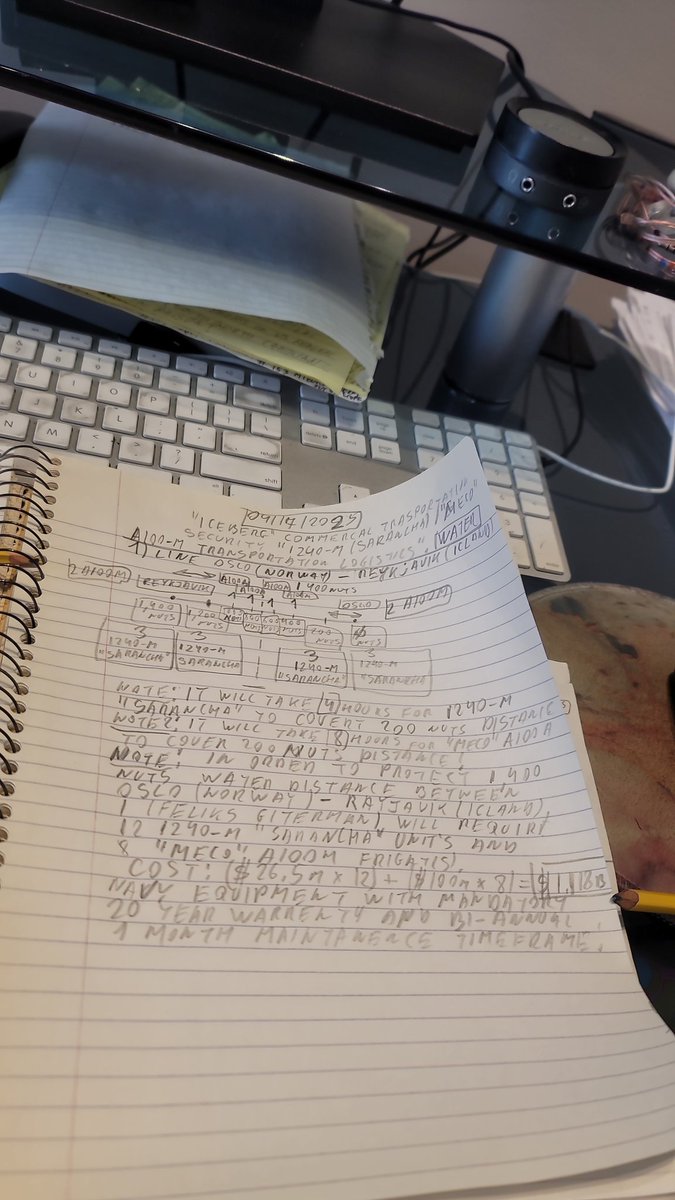 09/14/2025
"ICEBERG" COMMERCAL TRASPORTATION
SECURITY "1240-M (SARANCHA) / "MECO"
A100-M TRANSPORTATION LOGISTICS". WATER
1) LINE OSLO (NORWAY) - REYKJAVIK (ICLAND)
1400 NUTS
2 A100M REYKJAVIK A100M A100M A100M A100M OSLO 2 A100M
1,400 NUTS 1,200 NUTS 200 NUTS NUTS
3 1240-M "SARANCHA" 3 1240-M SARANCHA 3 1240-M "SARANCHA" 3 1240-M "SARANCHA"
NOTE: IT WILL TAKE 4 HOURS FOR 1240-M
"SARANCHA" TO COVERT 200 NUTS DISTANCE;
NOTE2: IT WILL TAKE 8 HOURS FOR "MECO" A100A
TO COVER 200 NUTS DISTANCE!
NOTE: IN ORDER TO PROTECT 1400
NUTS WATER DISTANCE BETWEEN
OSLO (NORWAY) - RAYJAVIK (ICLAND),
I (FELIKS GITERMAN) WILL REQUIRY
12 1240-M "SARANCHA" UNITS AND
8 "MECO" A100M FRIGAT(S).
COST: ($26,5m x 12) + ($100m x 8) = $1,118B
NAVY EQUIPMENT WITH MANDATORY
20 YEAR WARRENTY AND BI-ANNUAL
1 MONTH MAINTANENCE TIMEFRAME.